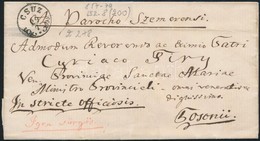 CSUZ
Parocho Szemerensi
Admodum Reverendo ac Eximio Patri
Cyriaco Piry
Ven. Provinciae Sanctae Mariae
Ministro Provinciali omni veneratione
dignissimo
In stricte officiosis
Posonii
Igen sürgős